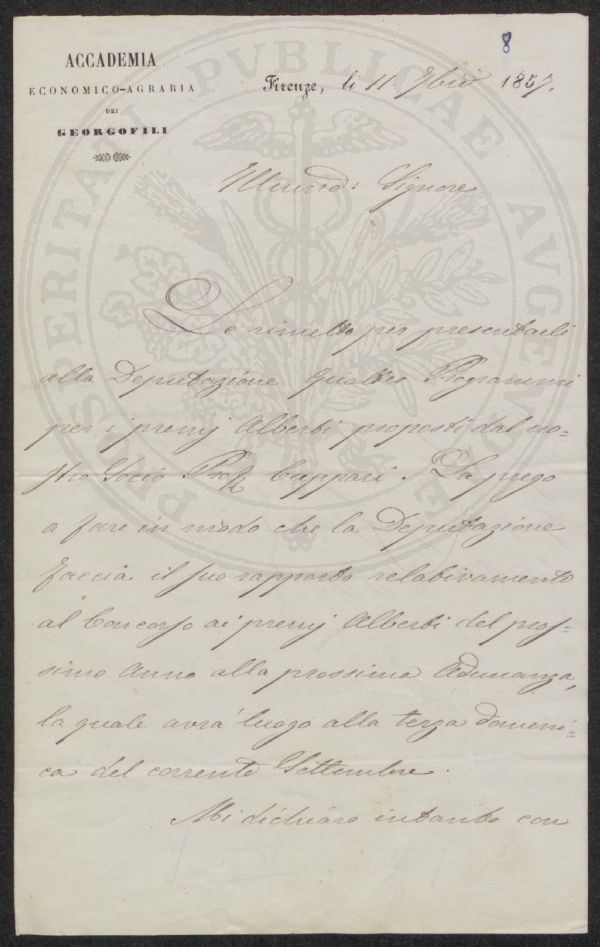 8
ACCADEMIA
ECONOMICO-AGRARIA
DEI
GEORGOFILI
Firenze, li 11 7bre 1857.
PROSPERITATI PVBLICAE AVGENDAE
Signore
Le rimetto per presentarli
alla Deputazione quattro Programmi
per i premj Alberti proposti dal no-
stro Socio Prof. Cuppari. La prego
a fare in modo che la Deputazione
faccia il suo rapporto relativamente
al Concorso ai premj Alberti del pros-
simo Anno alla prossima Adunanza,
la quale avrà luogo alla terza domeni-
ca del corrente Settembre.
Mi dichiaro intanto con